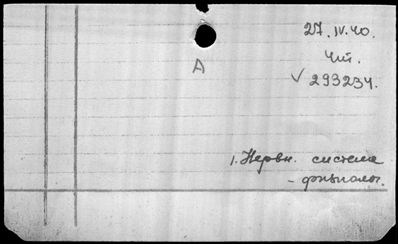 27.IV.40.
А
Чит.
√ 293234.
1. Нервн. система
- физиолог.